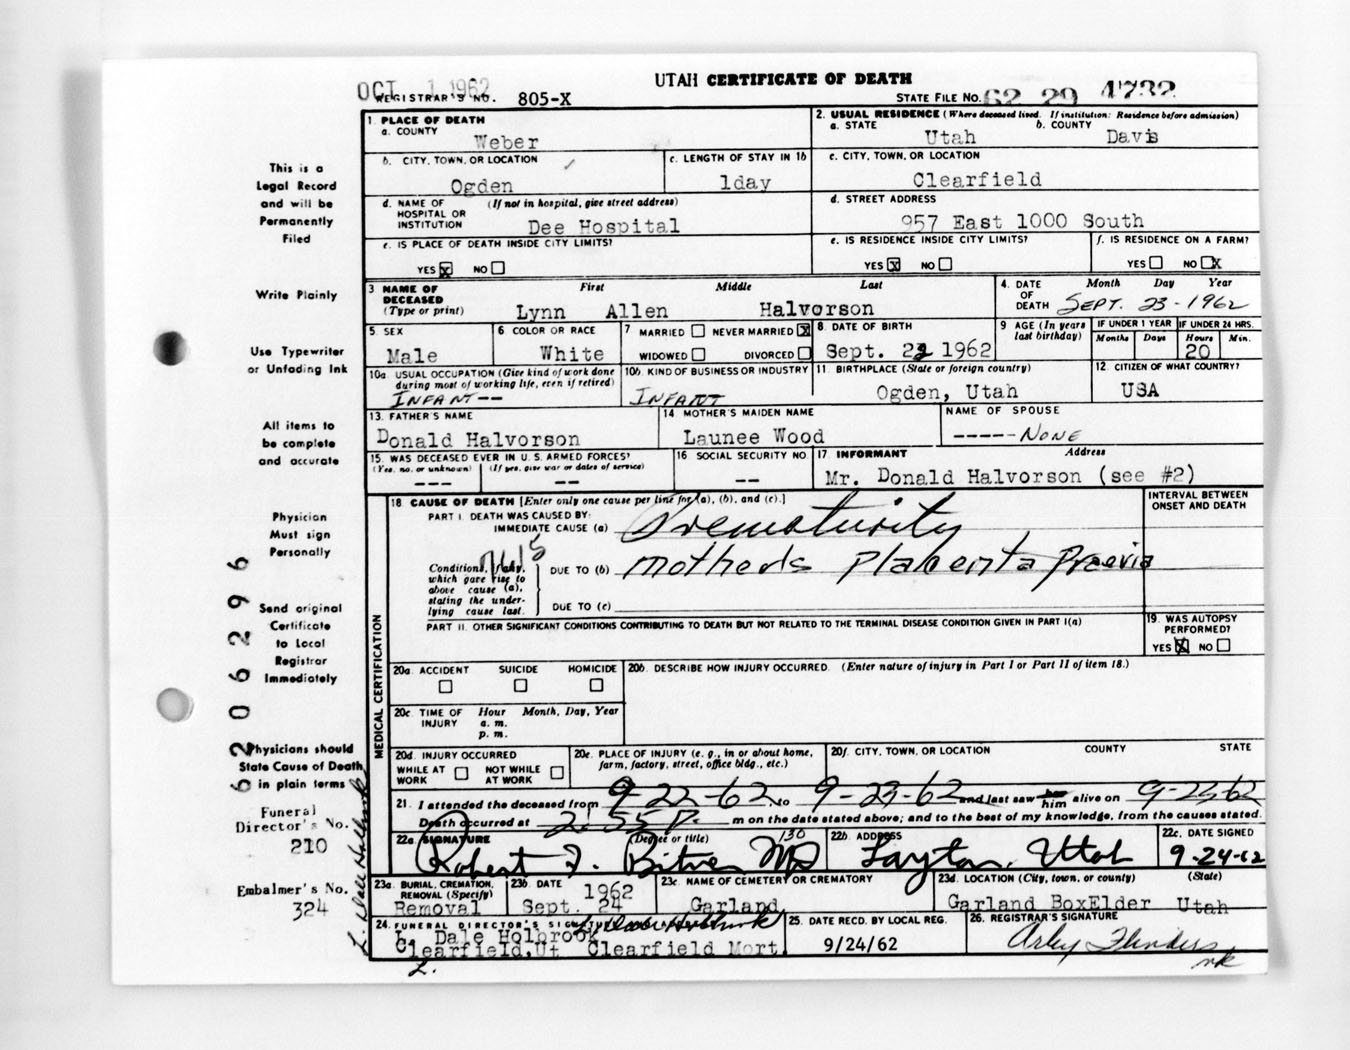 OCT 1 1962
UTAH CERTIFICATE OF DEATH
REGISTRAR'S NO. 805-X
STATE FILE NO. 62 29 4732
1. PLACE OF DEATH
a. COUNTY
Weber
2. USUAL RESIDENCE (Where deceased lived. If institution: Residence before admission)
a. STATE b. COUNTY
Utah Davis
b. CITY, TOWN, OR LOCATION
Ogden
c. LENGTH OF STAY IN 1b
1day
c. CITY, TOWN, OR LOCATION
Clearfield
d. NAME OF HOSPITAL OR INSTITUTION (If not in hospital, give street address)
Dee Hospital
d. STREET ADDRESS
957 East 1000 South
e. IS PLACE OF DEATH INSIDE CITY LIMITS?
YES X NO
e. IS RESIDENCE INSIDE CITY LIMITS?
YES X NO
f. IS RESIDENCE ON A FARM?
YES NO X
3 NAME OF DECEASED (Type or print)
First Middle Last
Lynn Allen Halvorson
4. DATE OF DEATH Month Day Year
SEPT. 23-1962
5 SEX
Male
6 COLOR OR RACE
White
7 MARRIED NEVER MARRIED X
WIDOWED DIVORCED
8. DATE OF BIRTH
Sept. 22 1962
9 AGE (In years last birthday)
IF UNDER 1 YEAR
Months Days
IF UNDER 24 HRS.
Hours Min.
20
10a. USUAL OCCUPATION (Give kind of work done during most of working life, even if retired)
INFANT--
10b. KIND OF BUSINESS OR INDUSTRY
INFANT
11. BIRTHPLACE (State or foreign country)
Ogden, Utah
12. CITIZEN OF WHAT COUNTRY?
USA
13. FATHER'S NAME
Donald Halvorson
14 MOTHER'S MAIDEN NAME
Launee Wood
NAME OF SPOUSE
-----NONE
15. WAS DECEASED EVER IN U. S. ARMED FORCES?
(Yes, no, or unknown) (If yes, give war or dates of service)
--- --
16 SOCIAL SECURITY NO.
--
17. INFORMANT Address
Mr. Donald Halvorson (see #2)
18. CAUSE OF DEATH [Enter only one cause per line for (a), (b), and (c).]
INTERVAL BETWEEN ONSET AND DEATH
PART I. DEATH WAS CAUSED BY:
IMMEDIATE CAUSE (a) Prematurity
Conditions, if any, which gave rise to above cause (a), stating the underlying cause last.
DUE TO (b) Mother's Placenta Praevia
DUE TO (c)
PART II. OTHER SIGNIFICANT CONDITIONS CONTRIBUTING TO DEATH BUT NOT RELATED TO THE TERMINAL DISEASE CONDITION GIVEN IN PART I(a)
19. WAS AUTOPSY PERFORMED?
YES X NO
MEDICAL CERTIFICATION
20a. ACCIDENT SUICIDE HOMICIDE
20b. DESCRIBE HOW INJURY OCCURRED. (Enter nature of injury in Part I or Part II of item 18.)
20c. TIME OF INJURY Hour Month, Day, Year
a. m.
p. m.
20d. INJURY OCCURRED
WHILE AT WORK NOT WHILE AT WORK
20e. PLACE OF INJURY (e. g., in or about home, farm, factory, street, office bldg., etc.)
20f. CITY, TOWN, OR LOCATION COUNTY STATE
21. I attended the deceased from 9-22-62, to 9-23-62 and last saw him alive on 9-23-62
Death occurred at 2:55 P. m on the date stated above; and to the best of my knowledge, from the causes stated.
22a. SIGNATURE (Degree or title)
Robert F. Bitner MD 130
22b. ADDRESS
Layton, Utah
22c. DATE SIGNED
9-24-62
23a. BURIAL, CREMATION, REMOVAL (Specify)
Removal
23b. DATE
1962
Sept. 24
23c. NAME OF CEMETERY OR CREMATORY
Garland
23d. LOCATION (City, town, or county) (State)
Garland BoxElder Utah
24. FUNERAL DIRECTOR'S SIGNATURE
L. Dale Holbrook
Clearfield,Ut Clearfield Mort.
25. DATE RECD. BY LOCAL REG.
9/24/62
26. REGISTRAR'S SIGNATURE
Arley Flinders
nk
L.
This is a
Legal Record
and will be
Permanently
Filed
Write Plainly
Use Typewriter
or Unfading Ink
All items to
be complete
and accurate
Physician
Must sign
Personally
Send original
Certificate
to Local
Registrar
Immediately
Physicians should
State Cause of Death
in plain terms
Funeral
Director's No.
210
Embalmer's No.
324
L. Dale Holbrook
6206296